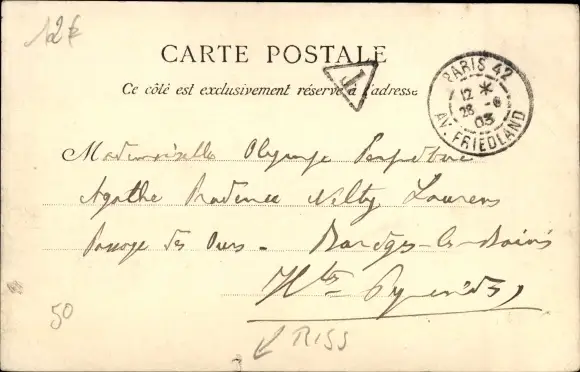 12€
CARTE POSTALE
Ce côté est exclusivement réservé à l'adresse
T
PARIS 42
12 *
28 -6
03
AV. FRIEDLAND
Mademoiselle Olympe
Agathe Prudence Laurens
Passage des Ours - Barèges-les-Bains
Htes Pyrenées
50
RISS